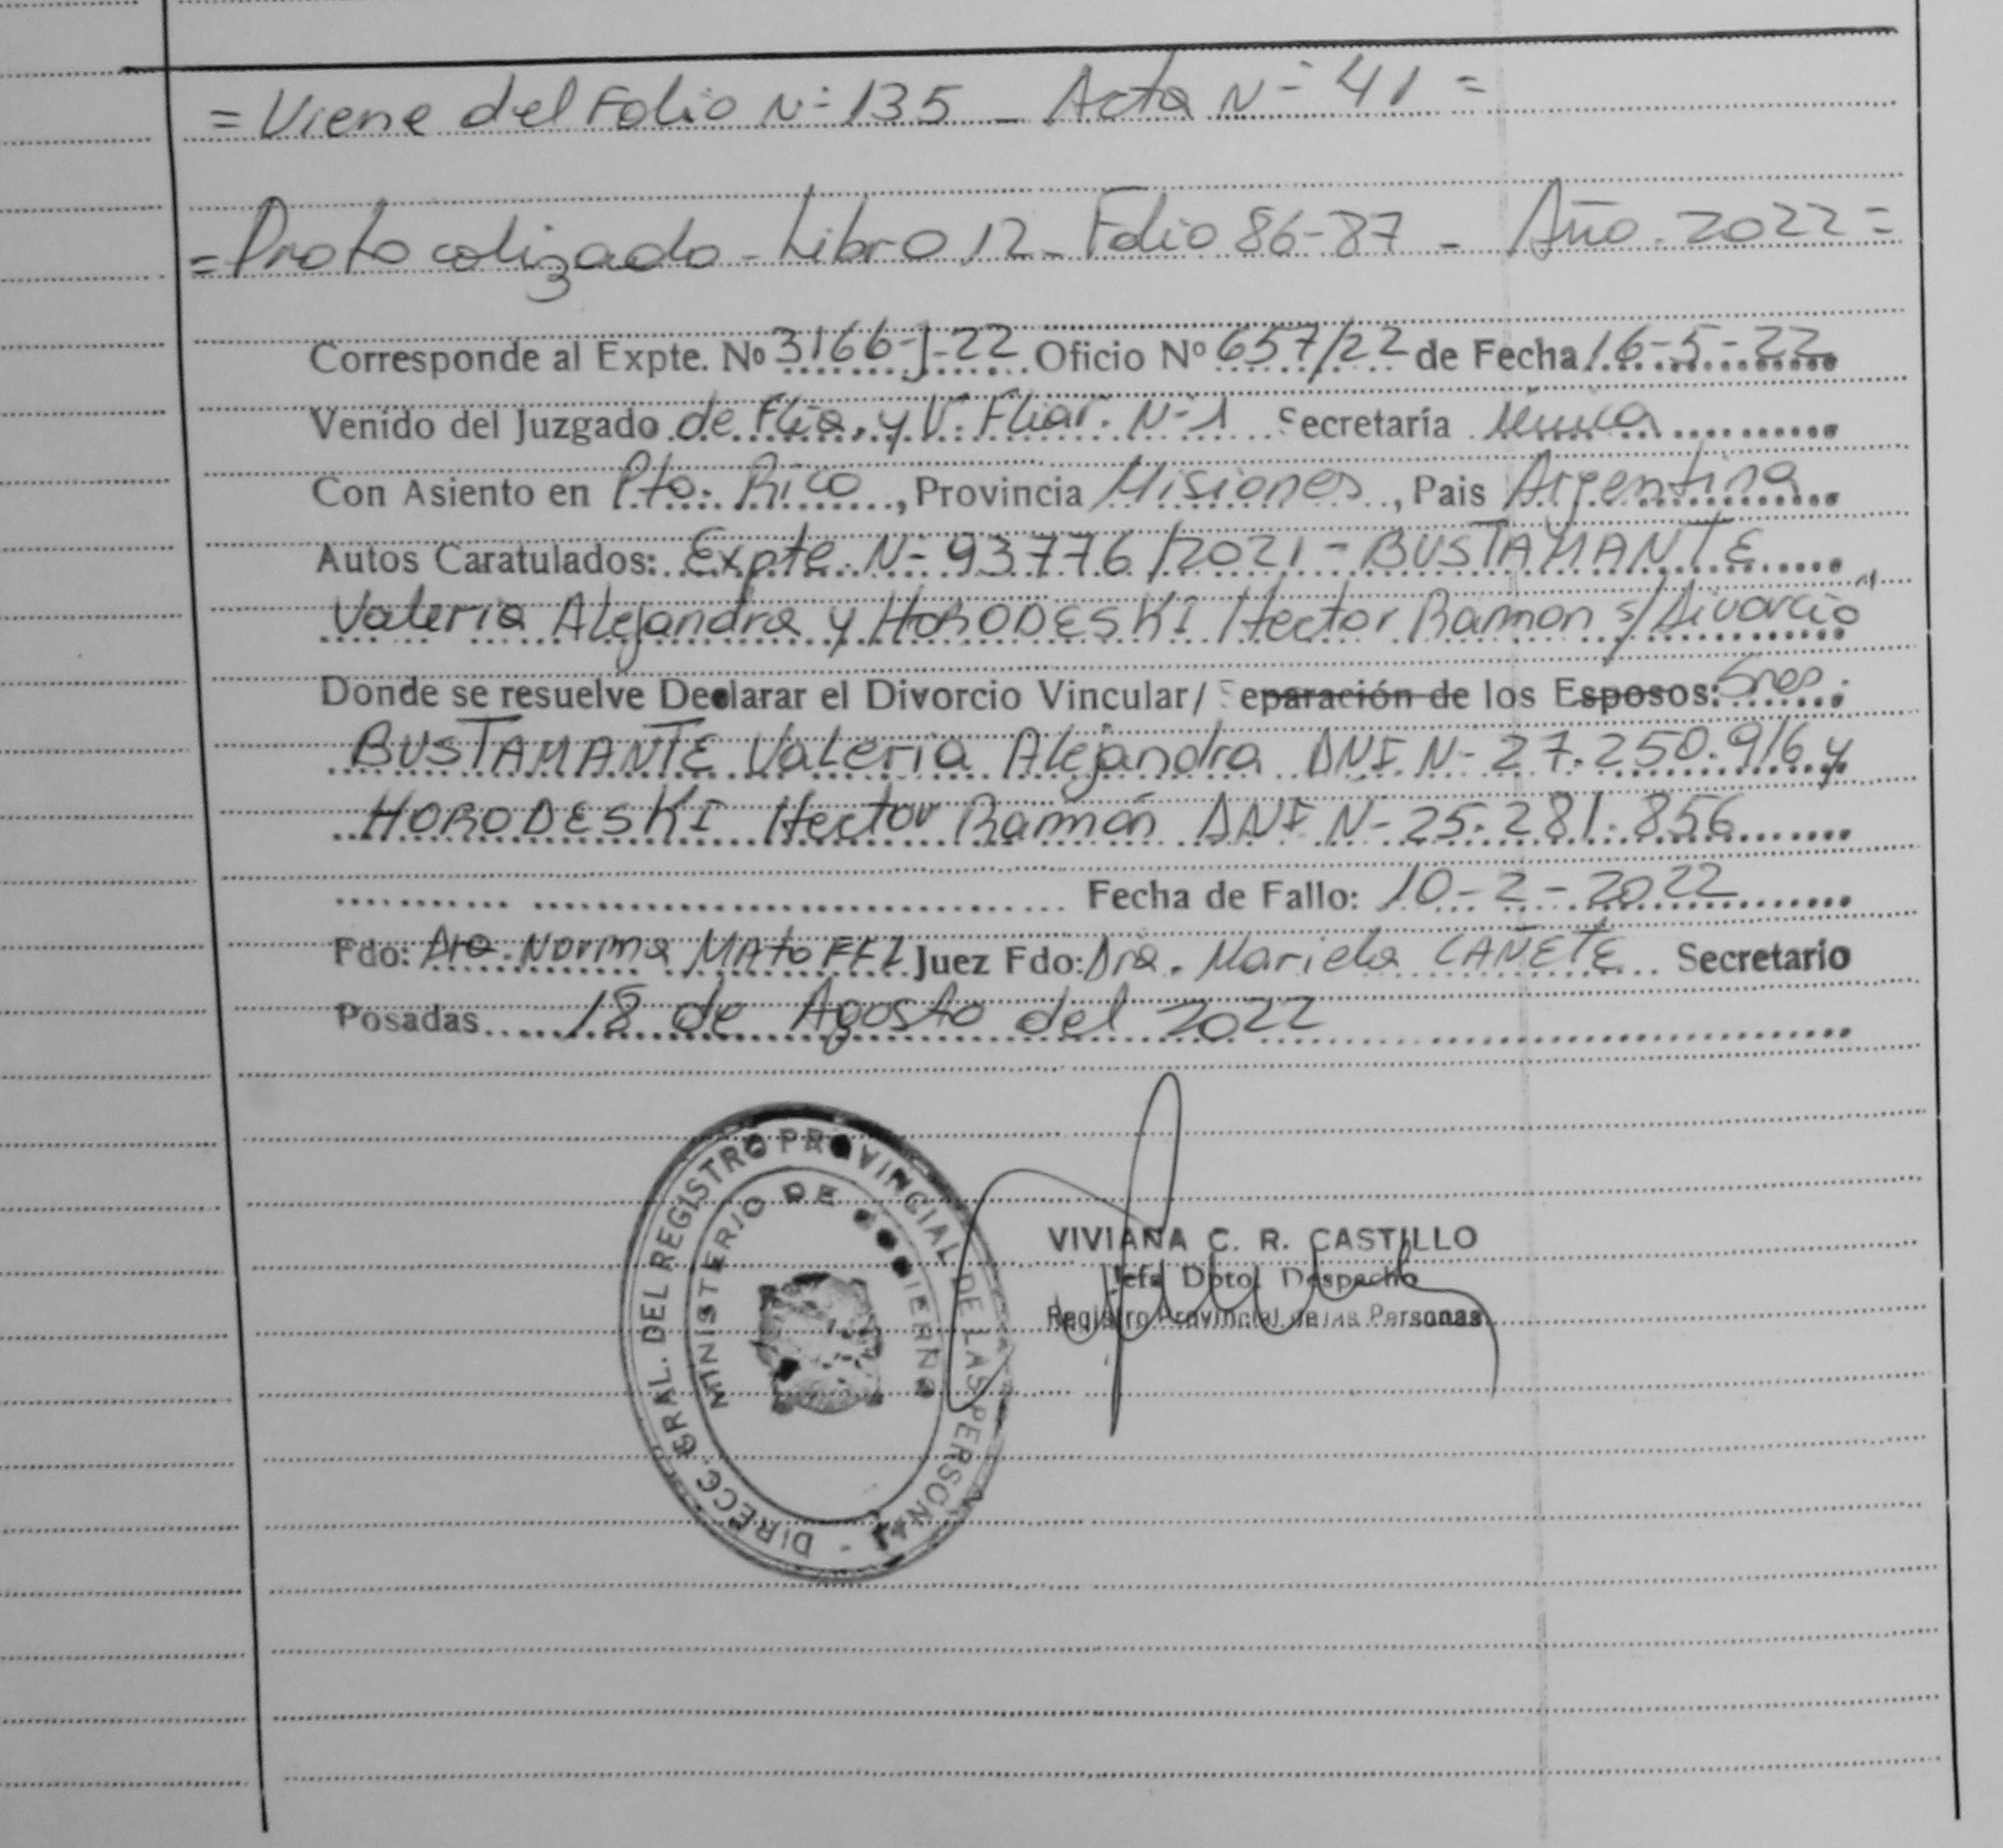 = Viene del Folio Nº 135 _ Acta Nº 41 =
= Protocolizado - Libro 12 - Folio 86-87 - Año. 2022 =
Corresponde al Expte. Nº 3166-J-22 Oficio Nº 657/22 de Fecha 16-5-22
Venido del Juzgado de Flia. y V. Fliar. N-1 Secretaría Única
Con Asiento en Pto. Rico, Provincia Misiones, Pais Argentina
Autos Caratulados: Expte. N- 93776/2021 - BUSTAMANTE
Valeria Alejandra y HORODESKI Hector Ramon s/Divorcio"
Donde se resuelve Declarar el Divorcio Vincular/ Separación de los Esposos: Sres.
BUSTAMANTE Valeria Alejandra DNI N- 27.250.916 y
HORODESKI Hector Ramón DNI N- 25.281.856
Fecha de Fallo: 10-2-2022
Fdo: Dra. Norma MAtoFFI Juez Fdo: Dra. Mariela CAÑETE Secretario
Posadas 18 de Agosto del 2022
DIRECC. GRAL. DEL REGISTRO PROVINCIAL DE LAS PERSONAS -
MINISTERIO DE GOBIERNO
VIVIANA C. R. CASTILLO
Jefa Dpto. Despacho
Registro Provincial de las Personas